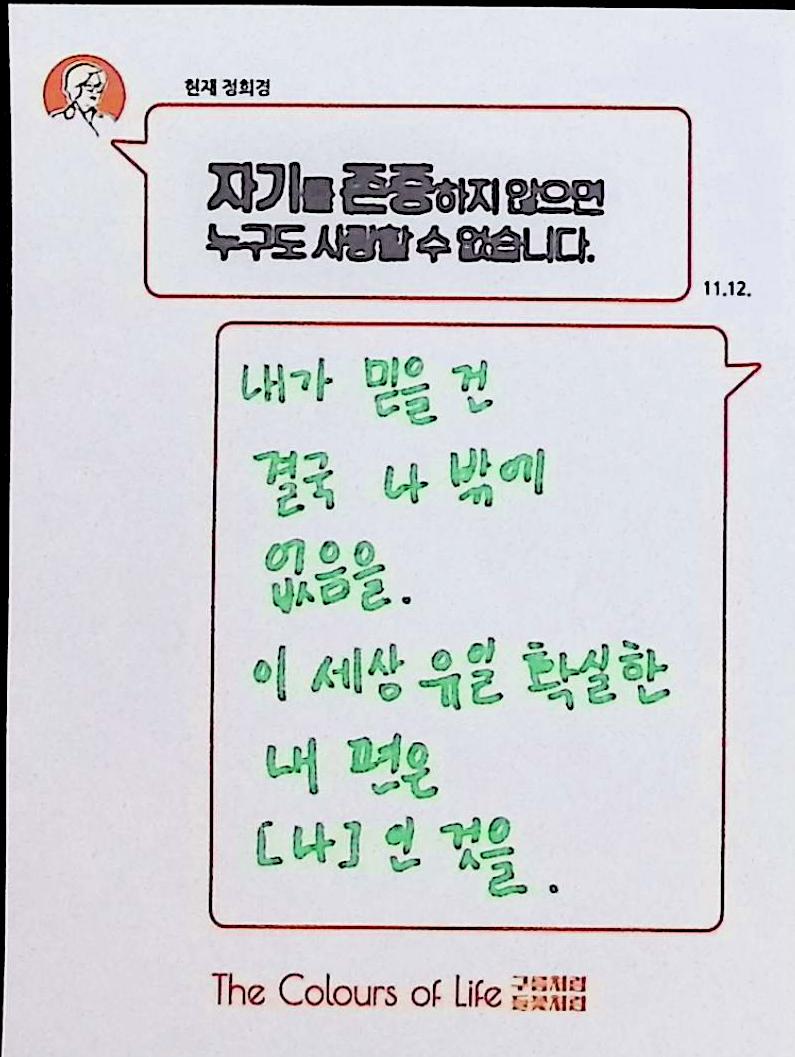 현재 정희경
자기를 존중하지 않으면
누구도 사랑할 수 없습니다.
11.12.
내가 믿을 건
결국 나 밖에
없음을.
이 세상 유일 확실한
내 편은
[나] 인 것을.
The Colours of Life 구름처럼
들꽃처럼